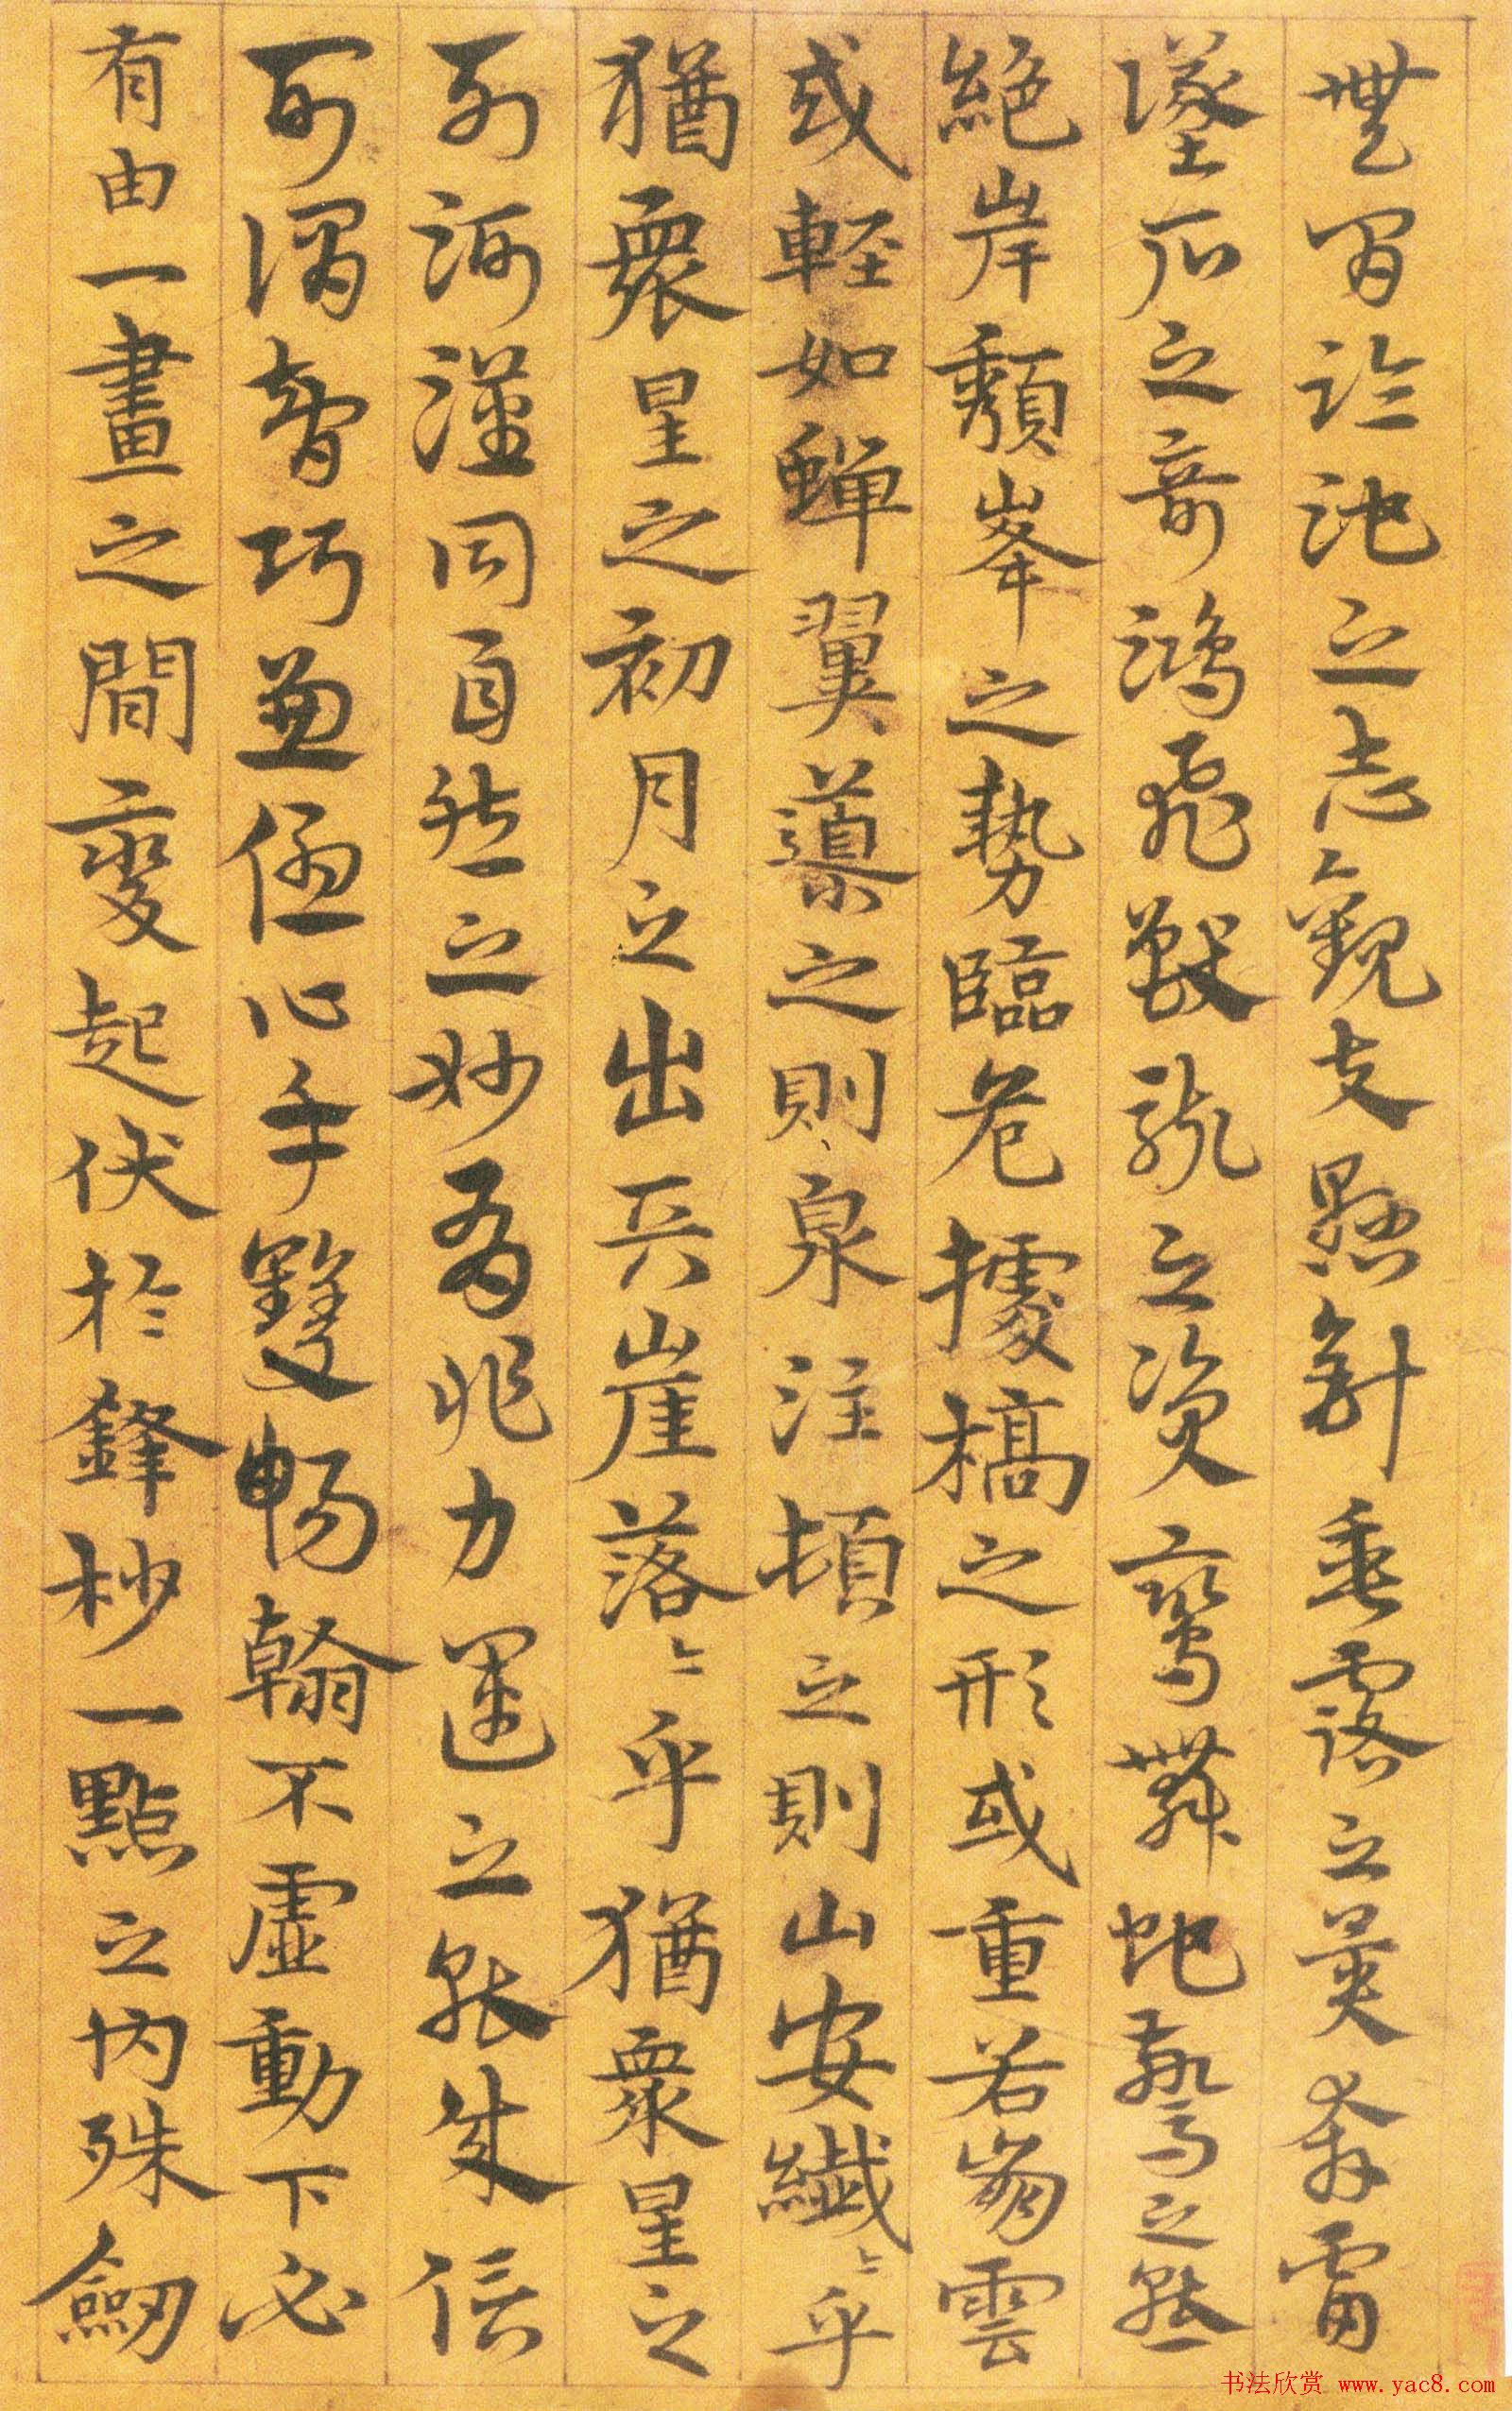 無間臨池之志觀夫懸針垂露之異奔雷
墜石之奇鴻飛獸駭之資鸞舞蛇驚之態
絕岸頹峯之勢臨危據槁之形或重若崩雲
或輕如蟬翼導之則泉注頓之則山安纖〻乎
猶衆星之初月之出天崖落〻乎猶衆星之
列河漢同自然之妙有非力運之能成信
可謂智巧兼優心手雙暢翰不虛動下必
有由一畫之間變起伏於鋒杪一點之内殊劒
书法欣赏 www.yac8.com